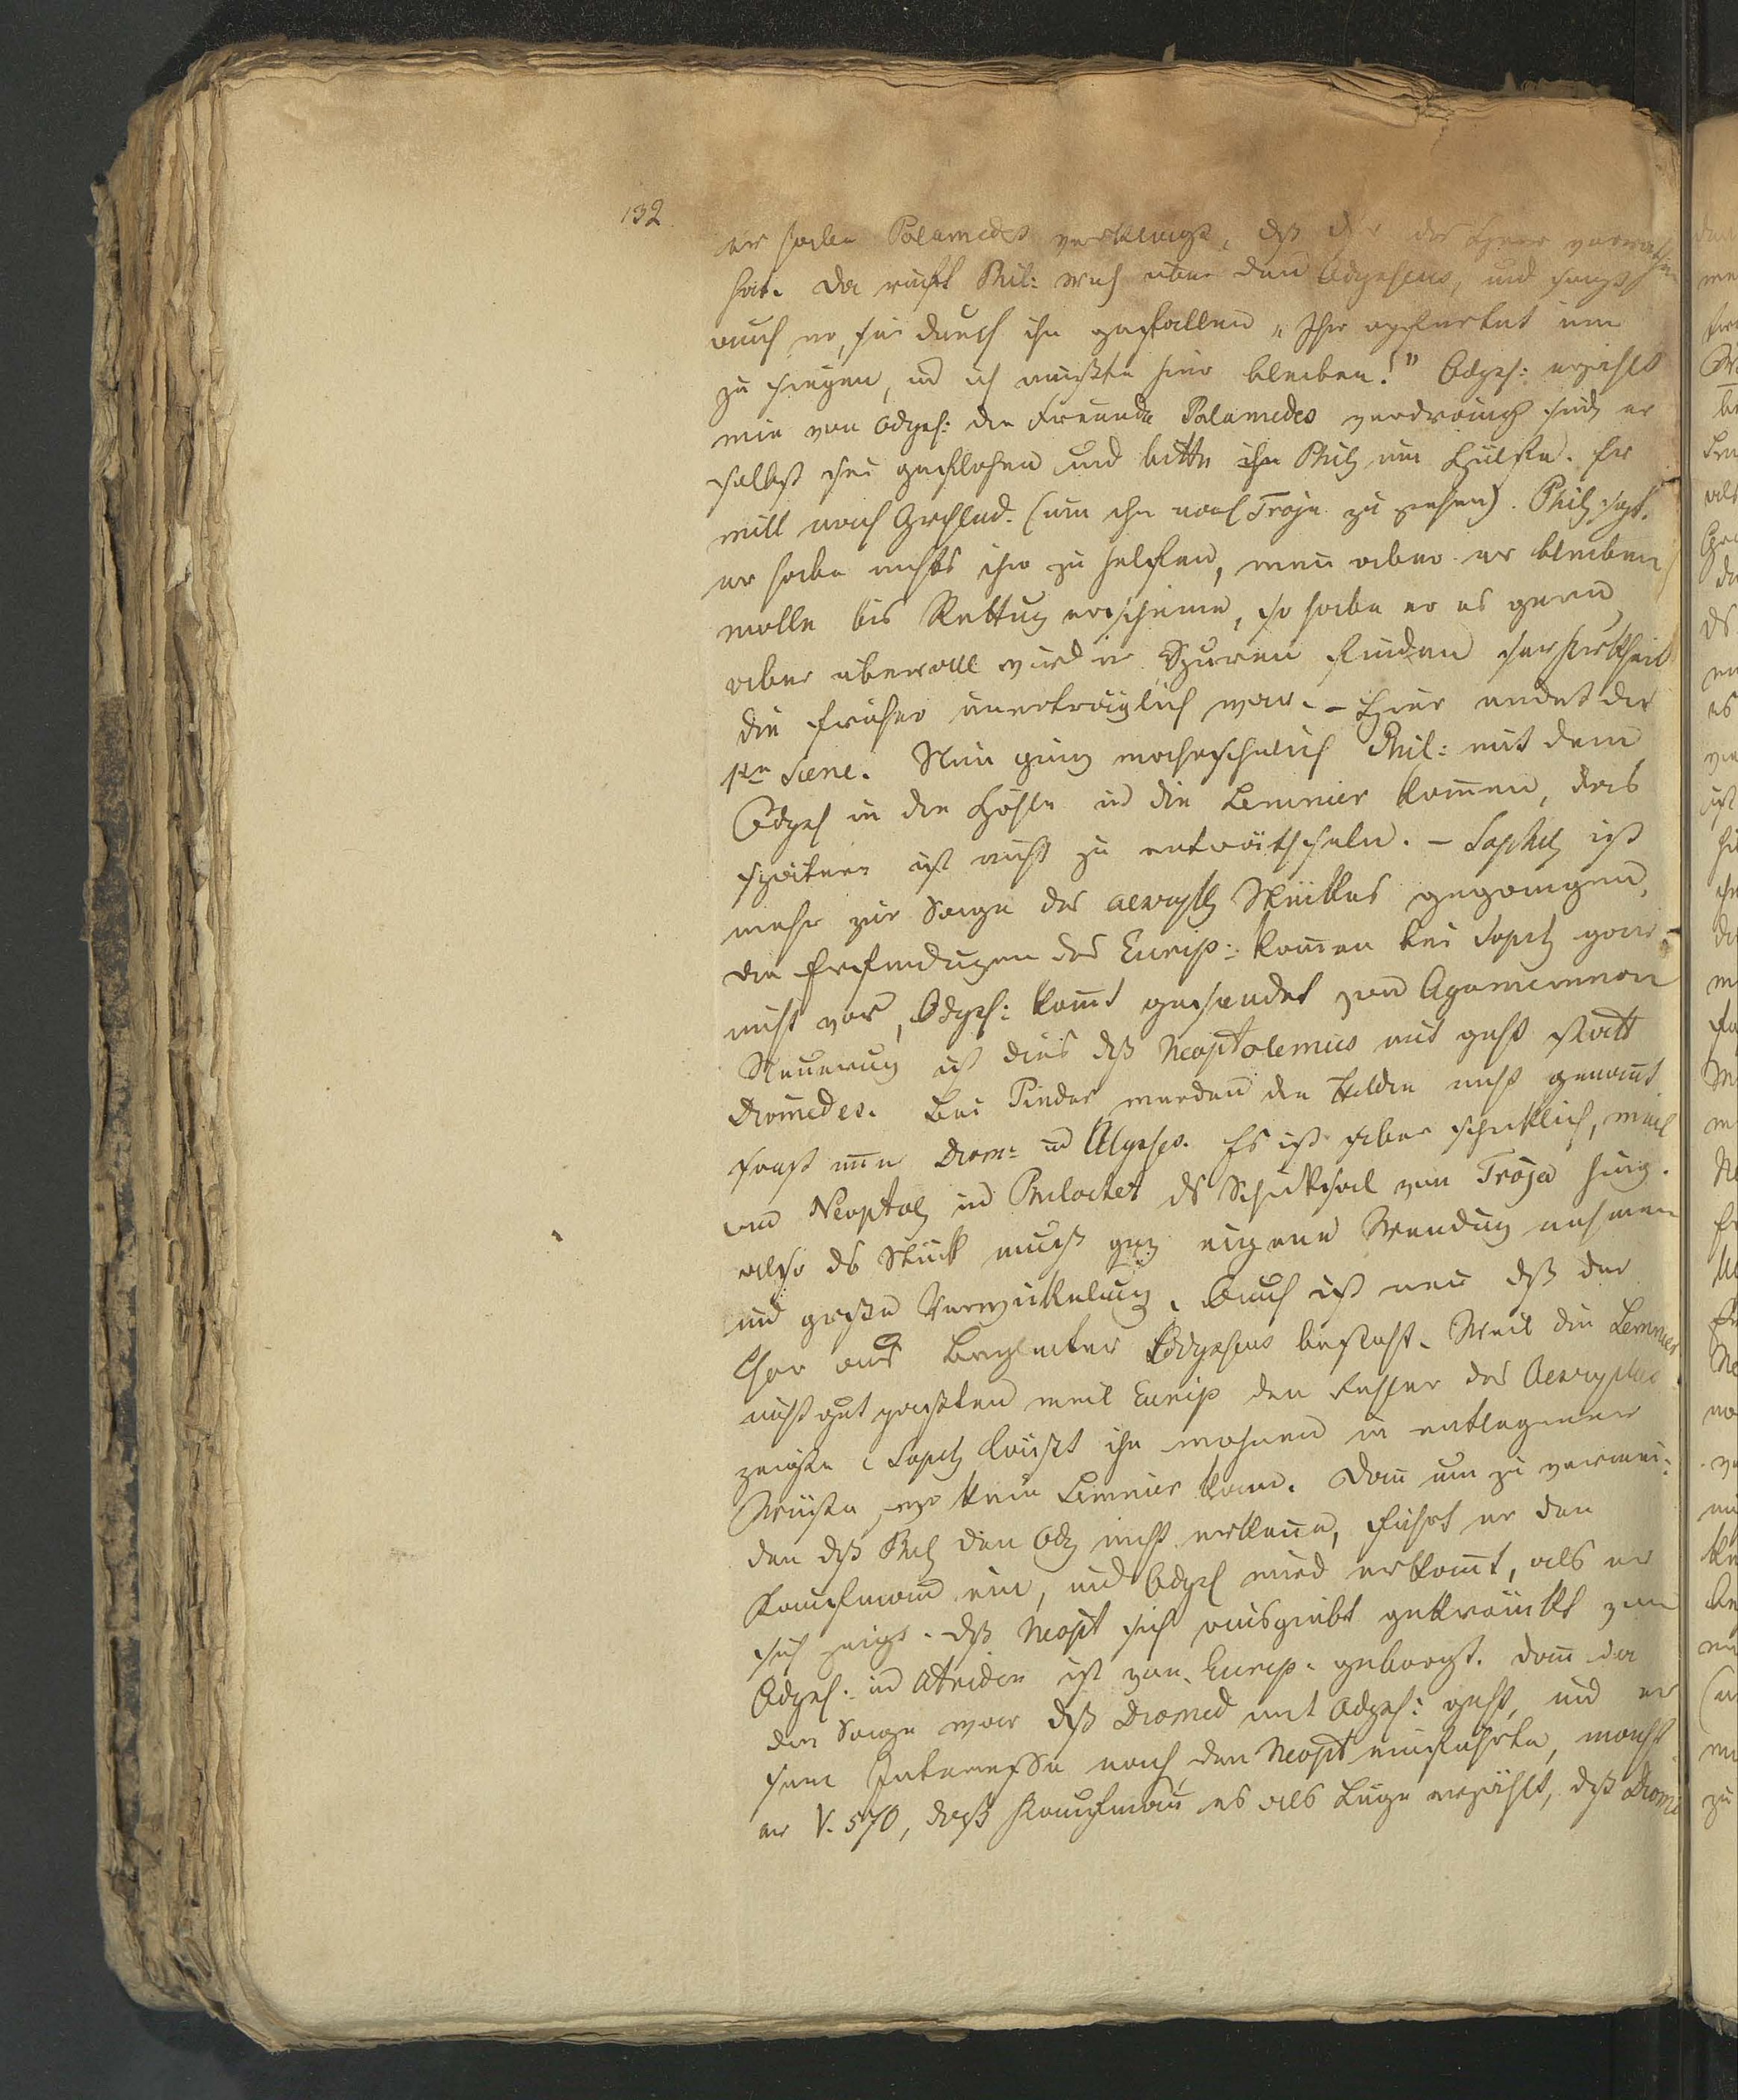 132
er habe Palamedes verklagt, dß er das Heer verrathen
hat. Da ruft Phil: Weh über den Odysseus, und sagt
auch er, sei durch ihn gefallen „Ihr opfertet um
zu siegen, und ich mußte hier bleiben!" Odyss: erzählt
wie von Odyss: die Freunde Palamedes verdrängt sind, er
selbst sei geflohen und bitte Phil, um Hülfe. Er
will nach Grchlnd. (um ihn nach Troja zu ziehen). Phil, sagt.
er habe nichts ihm zu helfen, wenn aber er bleiben
wolle bis Rettung erscheine, so habe er es gern,
aber überall würd er Spuren finden der Krkheit
die früher unerträglich war. – Hier endet die
1te Scene. Nun ging wahrscheinlich Phil: mit dem
Odyss in die Höhle und die Lemnier kommen, das
spätere ist nicht zu enträthseln. – Sophcl, ist
mehr zur Sage des aeschyl, Stückes gegangen,
die Erfindungen des Eurip: kommen bei Sophcl, gar
nicht vor, Odyss: kommt gesendet von Agamemnon
Neuerung ist dies dß Neoptolemus mit geht statt
Diomedes. Bei Pindar werden die Helden nicht genannt
sonst nur Diom: und Ulysses. Es ist aber schicklich, weil
von Neoptol, und Philoctet ds Schicksal von Troja hing.
also ds Stück muß gnz eigene Wendung nehmen
und große Verwickelung. Auch ist neu dß der
Chor aus Begleiter Odysseus besteht. Weil die Lemnier
nicht gut paßten weil Eurip den Fehler des Aeschylus
zeigte (Sophcl, läußt ihn wohnen in entlegener
Wüste, wo kein Lemnier kam. Dann um zu vermei:
den dß Phil, den Od, nicht erkenne, führt er den
Kaufmann ein, und Odyss wird erkannt, als er
sich zeigt. Dß Neopt sich ausgiebt gekränkt von
Odyss. und Atriden ist von Eurip. geborgt. Dann da
die Sage war dß Diomed mit Odyss: geht, und er
sein Interesse nach, den Neopt einführte, macht
er V. 570, daß Kaufmann es als Lüge erzählt, dß Diome